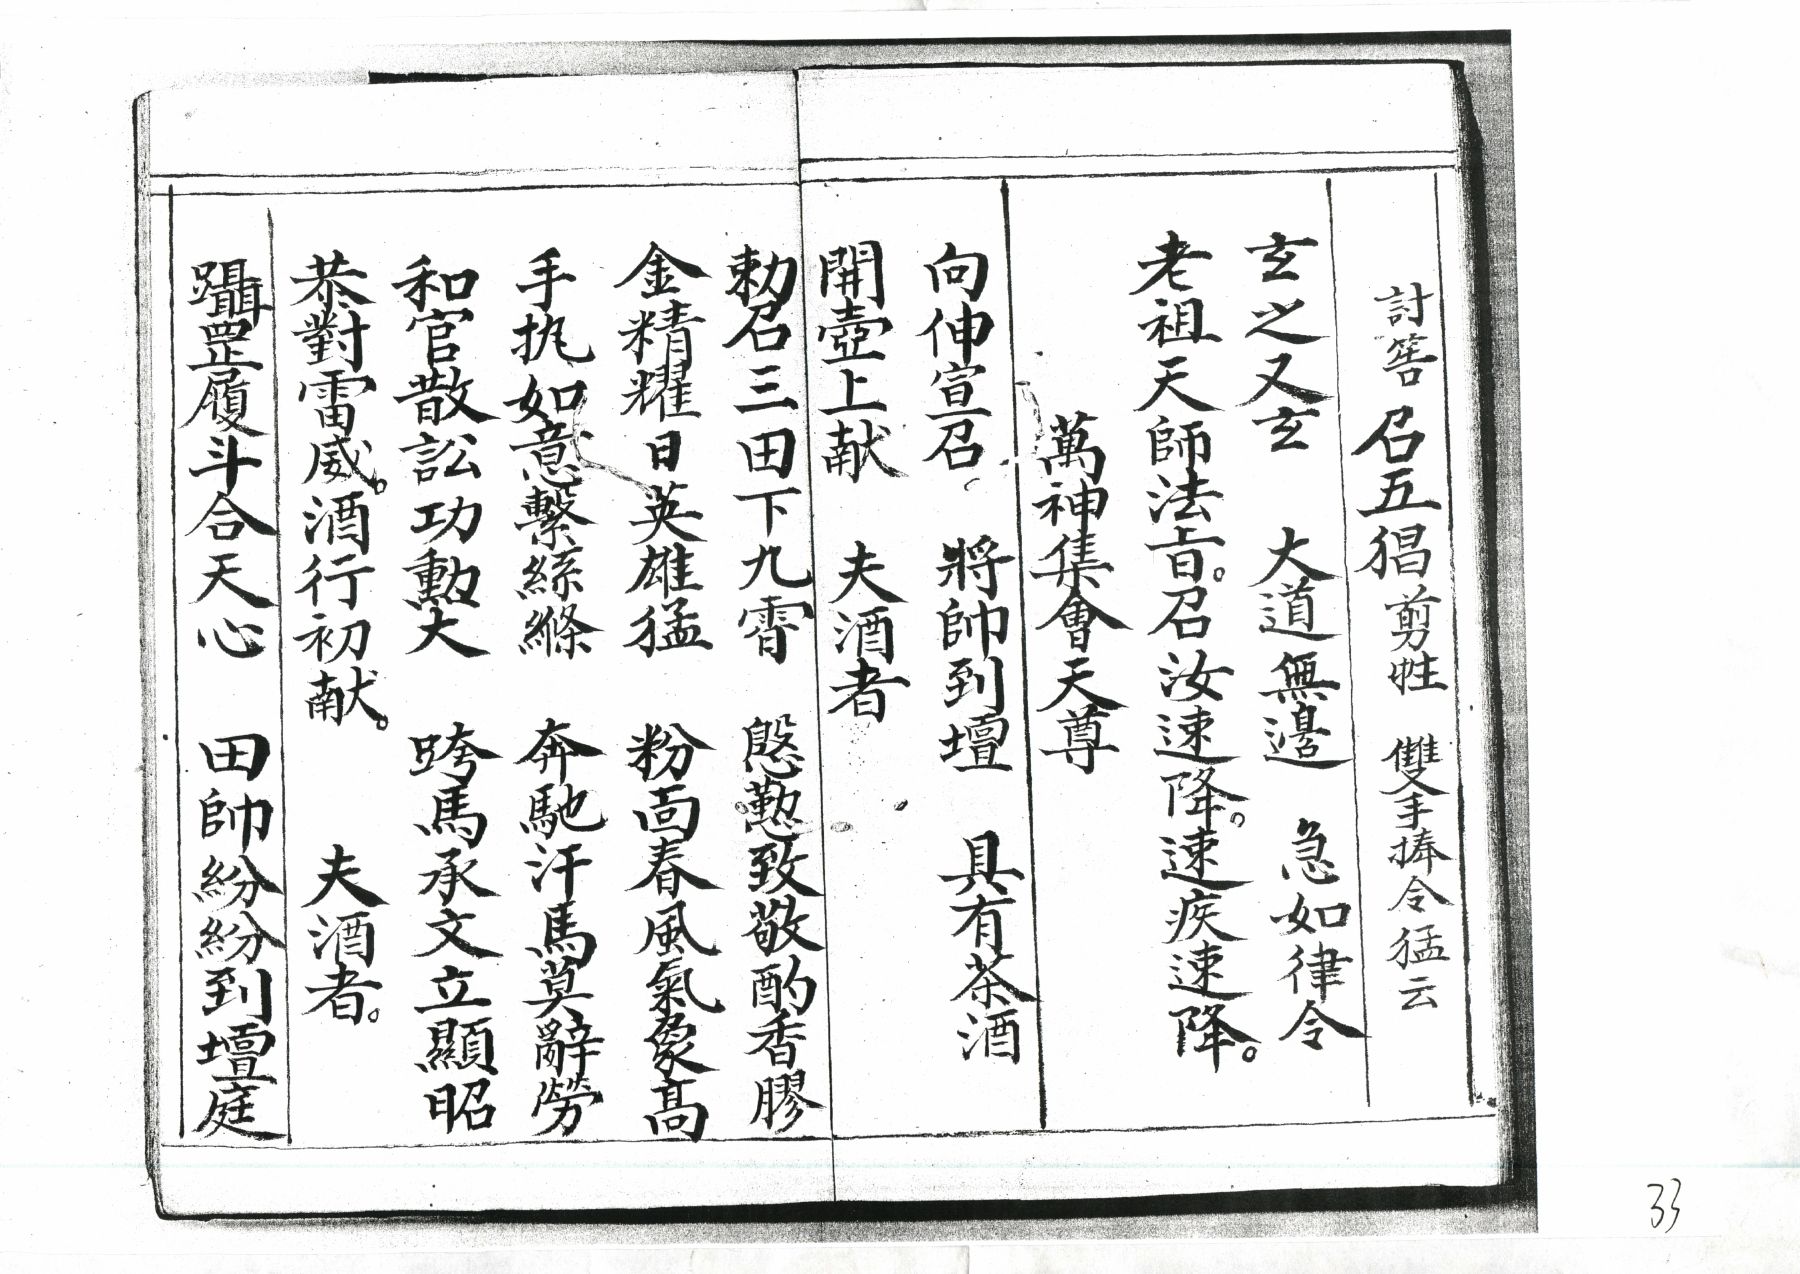 討筶 召五猖 剪牲 雙手捧令猛云
玄之又玄 大道無邊 急如律令
老祖天師法旨。召汝速降。速疾速降。
萬神集會天尊
向伸宣召 將帥到壇 具有茶酒
開壺上献 夫酒者
勅召三田下九霄 慇懃致敬酌香膠
金精耀日英雄猛 粉面春風氣象高
手执如意繫絲縧 奔馳汗馬莫辭勞
和官散訟功勳大 跨馬承文立顯昭
恭對雷威。酒行初献。 夫酒者。
躡罡履斗合天心 田帥紛紛到壇庭
33